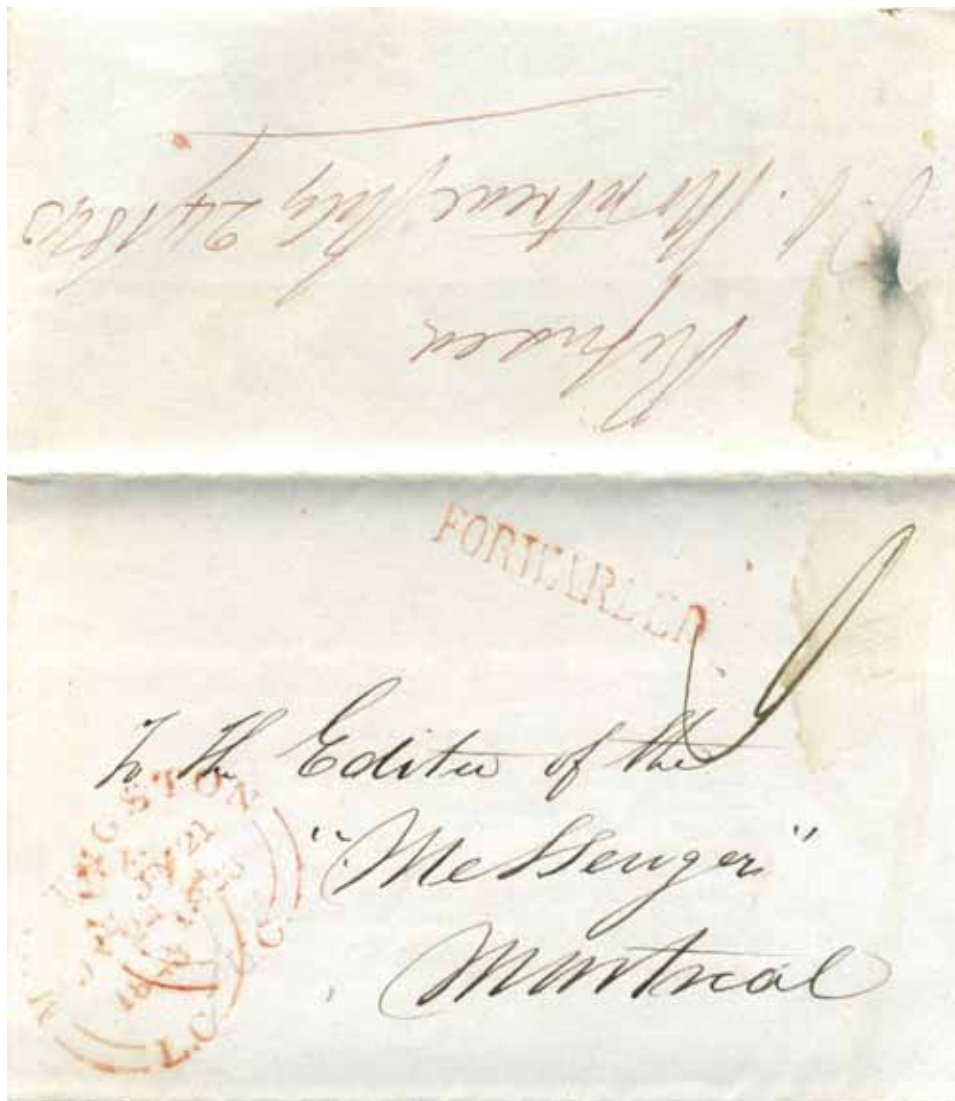 Refused
P. O. Montreal July 24 1843
FORWARDED
To the Editor of the
"Messenger"
Montreal
KINGSTON
L.C.